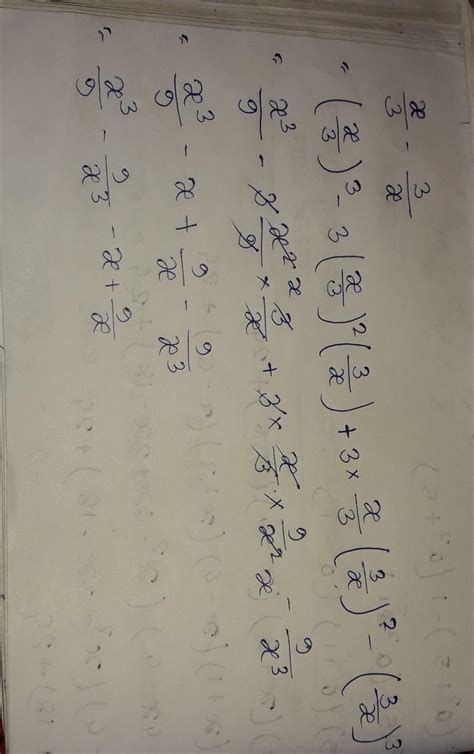 x/3 - 3/x
" (x/3)³ - 3(x/3)²(3/x) + 3 × x/3 (3/x)² - (3/x)³
" x³/9 - 3 x² x/9 × 3/x + 3 × x/3 × 9/x² x - 9/x³
" x³/9 - x + 9/x - 9/x³
" x³/9 - 9/x³ - x + 9/x